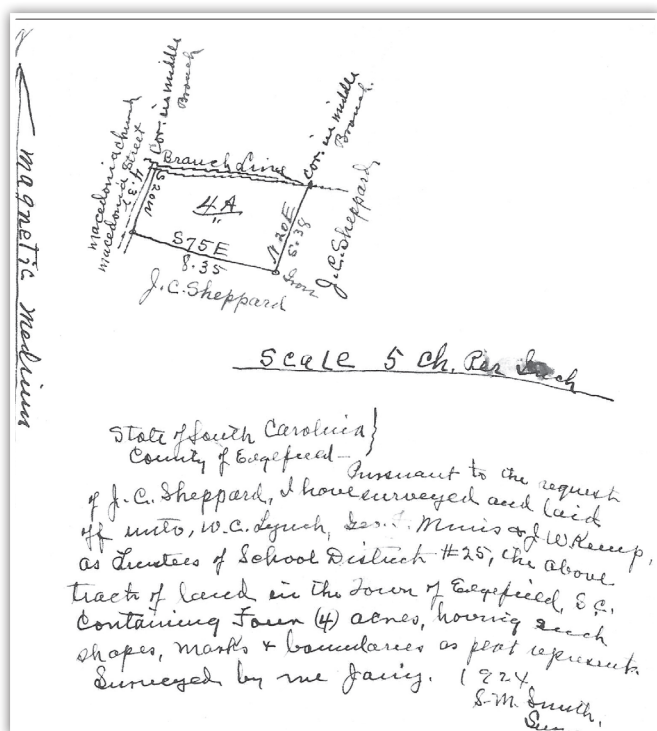 N
magnetic medium
Macedonia Church
Macedonia Street
Cor. in middle
Branch
Cor. in middle
Branch
Branch Line
S20W
4A
N 20 E
5.38
S75E
8.35
Iron
J.C. Sheppard
J.C. Sheppard
Scale 5 Ch. Per Inch
State of South Carolina }
County of Edgefield —
Pursuant to the request
of J.C. Sheppard, I have surveyed and laid
off unto, W.C. Lynch, Geo. T. Mims & J W Kemp,
as Trustees of School District #25, the above
tract of land in the Town of Edgefield, S.C.
Containing Four (4) acres, having such
shapes, marks & boundaries as plat represents
Surveyed by me 1924
S.M. Smith,
Sur